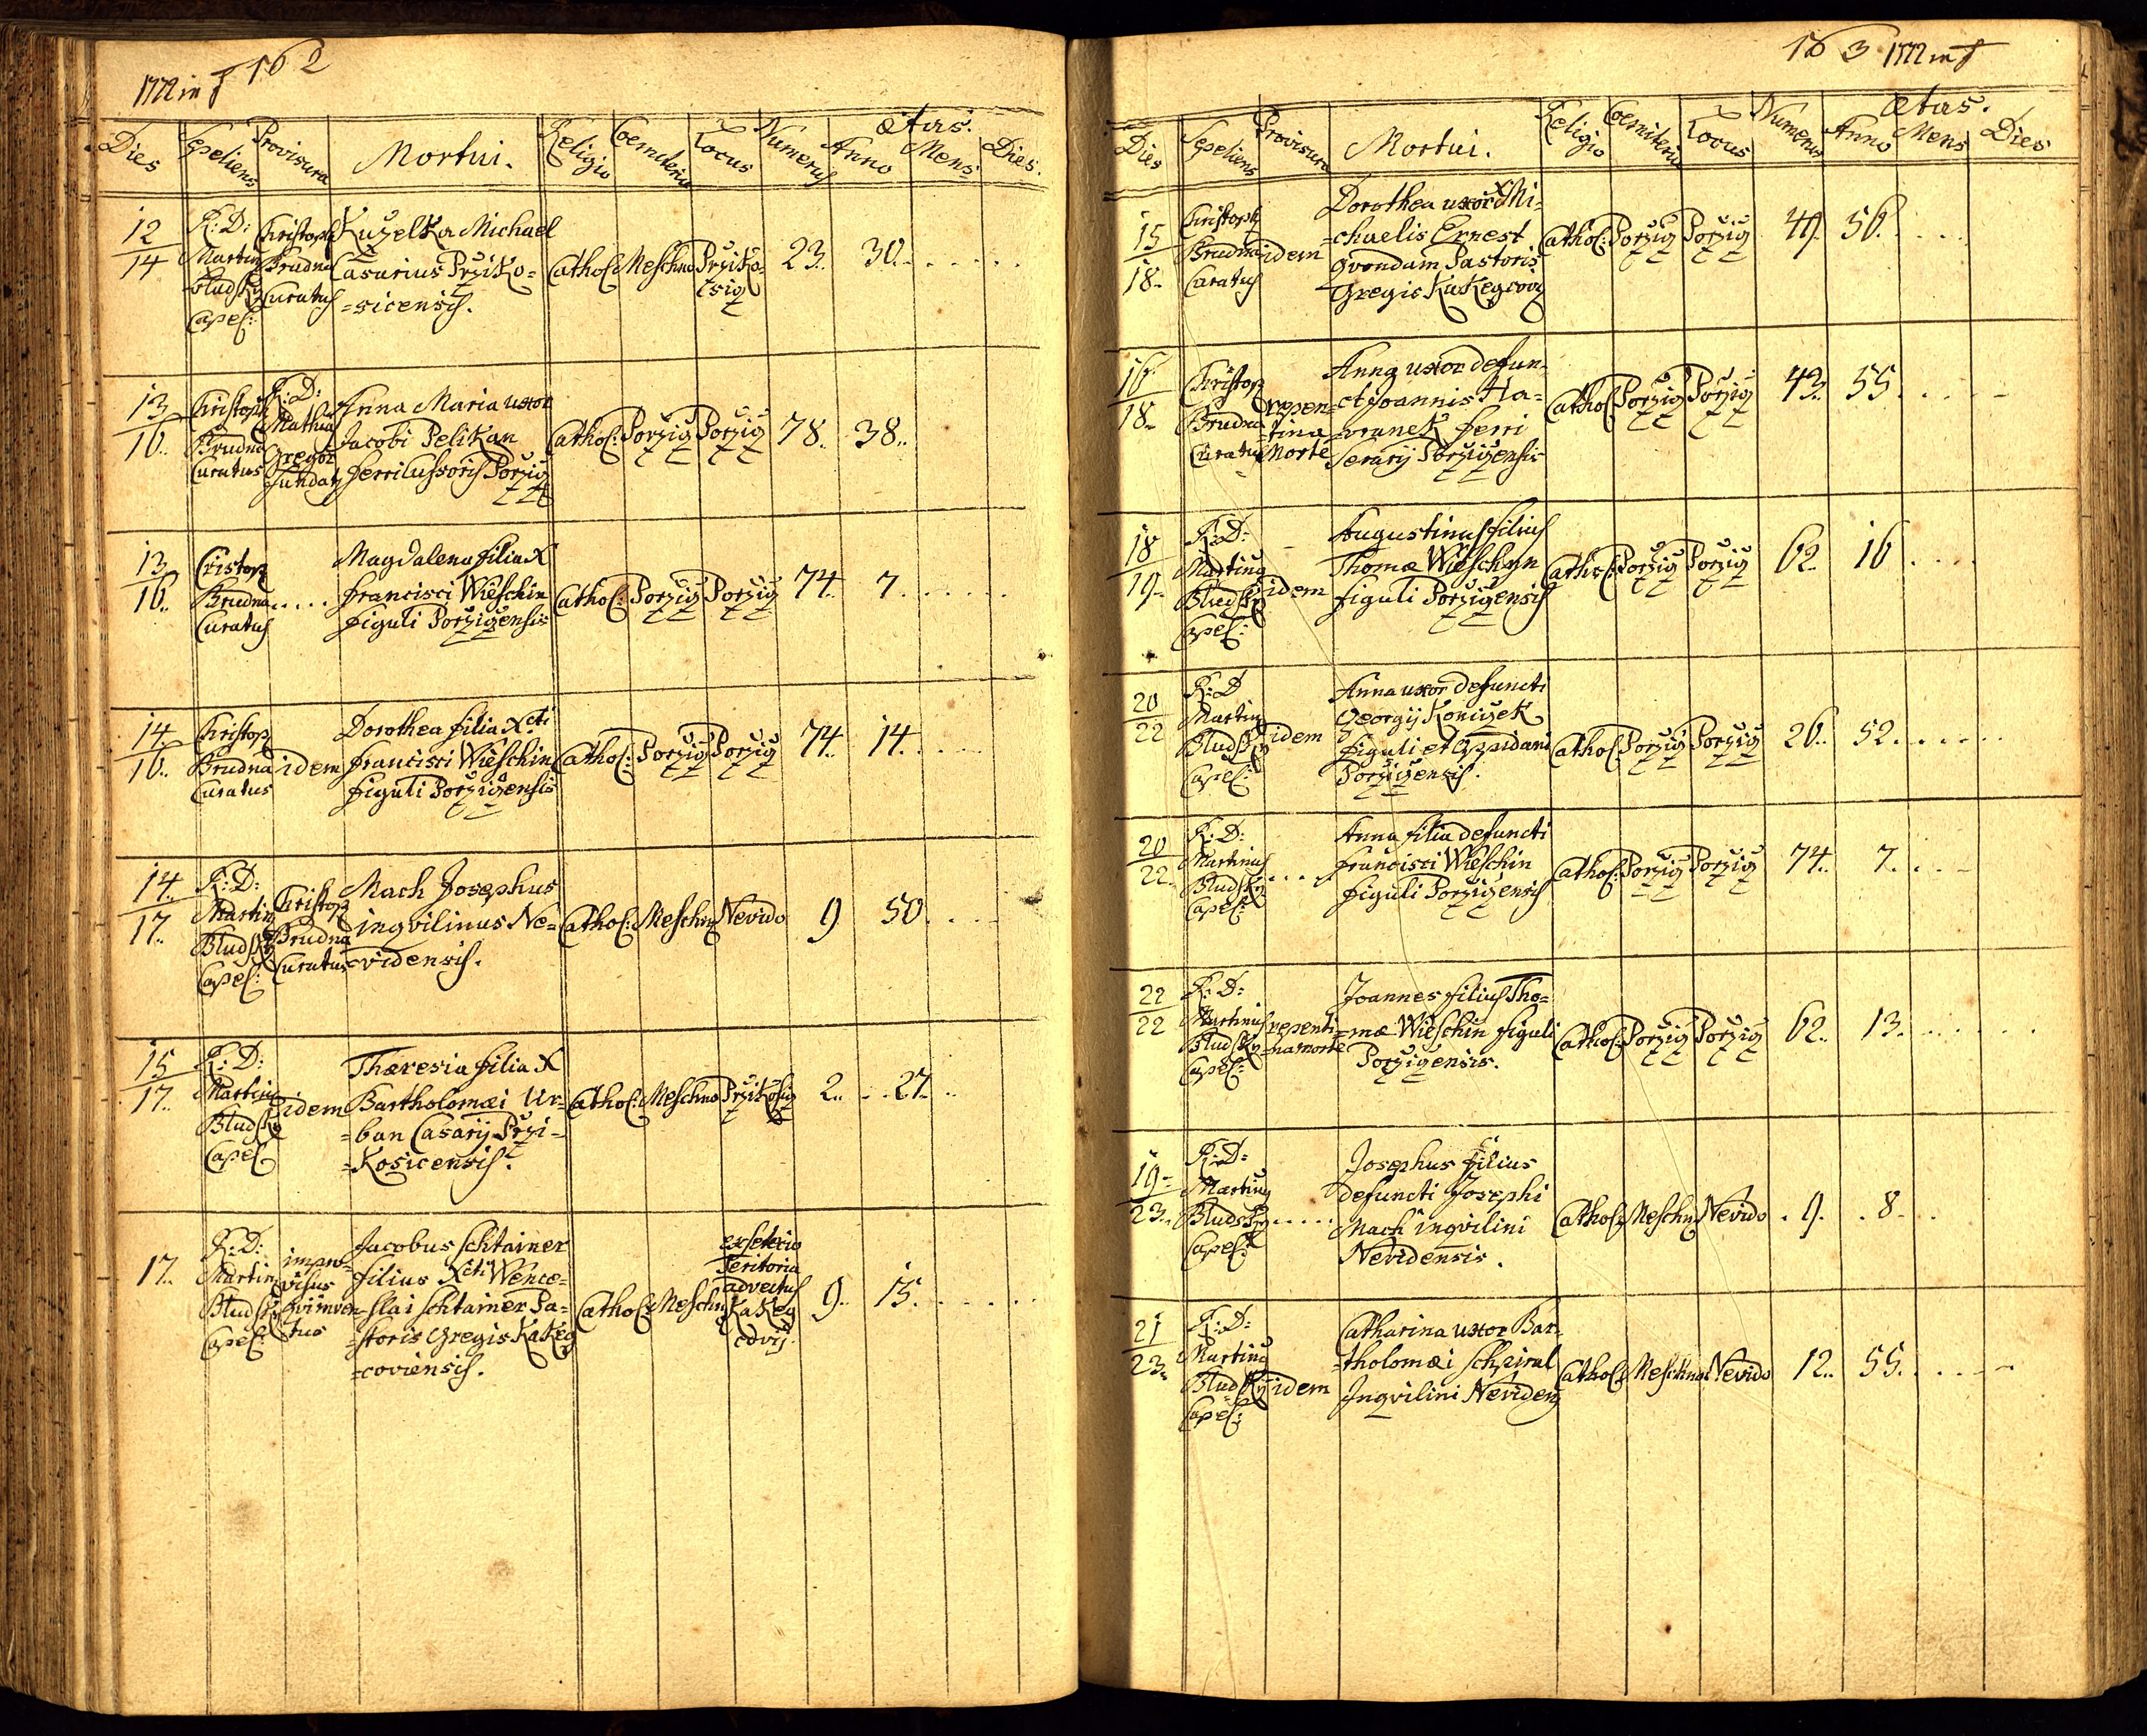 1772 in 162
Dies Sepeliens Provisura Mortui. Religio Coemeteriu Locus Numerus Ætas. Anno Mens Dies.
12/14
R: D: Martin Bludsky Capel:
Christoph Brudna Curatus
Kuželka Michael
Casarius Pržiko=
=sicensis.
Cathol: Meschno Pržiko=
sicz
23.. 30..
13/16..
Christoph Brudna Curatus
R: D: Mathia Gregor fundat
Anna Maria uxor
Jacobi Pelikan
ferrilussoris Poržicz
Cathol: Poržicz Poržicz 78.. 38..
13/16..
Cristoph
Brudna.....
Curatus
Magdalena filia X
Francisci Wieschin
figuli Poržiczensis
Cathol: Poržicz Poržicz 74.. 7.
14/16..
Christoph
Brudna idem
Curatus
Dorothea filia Xcti
Francisci Wieschin
figuli Poržiczensis
Cathol: Poržicz Poržicz 74.. 14.
14/17..
R: D:
Martin
Bludsky
Capel:
Christoph
Brudna
Curatus
Mach Josephus
inqvilinus Ne=
=vidensis.
Cathol: Meschn Nevido 9 50.
15/17..
R: D:
Martin
Bludsky
Capel
idem
Thæresia filia X
Bartholomæi Ur=
=ban Casarij Prži=
=Kosicensis.
Cathol: Meschno Pržikosicz 2.. 27..
17..
R: D:
Martin
Bludsky
Capel:
impro=
visus
qvi inven=
tus
Jacobus Schtainer
filius Xcti Wence=
=slai Schtainer Pa=
=storis Gregis KaKeg
=coviensis.
Cathol: Meschn
Teritoria
advectus
KaKeg
covij.
9.. 15.
163 1772 in
Dies Sepeliens Provisura Mortui. Religio Coemiteriu Locus Numerus Ætas. Anno Mens Dies
15/18..
Christoph
Brudna idem
Curatus
Dorothea uxor X Mi=
=chaelis Ernest
qvondam Pastoris
Gregis KaKegcovij
Cathol: Poržicz Poržicz 49. 56.
16/18..
Christoph
Brudna
Curatus
repen=
=tina
Morte
Anna uxor defun=
=cti Joannis Ha=
=vranek ferri
Serarij Poržiczensis
Cathol: Poržicz Poržicz 43.. 55.
18/19..
R: D:
Martinus
Bludsky idem
Capel:
Augustinus filius
Thomæ Wieschin
figuli Poržiczensis
Cathol: Poržicz Poržicz 62.. 16.
20/22
R: D
Martin
Bludsky idem
Capel:
Anna uxor defuncti
Georgij Koniczek
figuli et oppidani
Poržiczensis.
Cathol: Poržicz Poržicz 26.. 52.
20/22..
R: D:
Martinus
Bludsky....
Capel:
Anna filia defuncti
Francisci Wieschin
figuli Poržiczensis
Cathol: Poržicz Poržicz 74.. 7.
22/22
R: D:
Martinus
Bludsky
Capel:
repenti=
=na morte
Joannes filius Tho=
=mæ Wieschin figuli
Poržiczensis.
Cathol: Poržicz Poržicz 62.. 13.
19/23..
R: D:
Martinus
Bludsky.....
Capel:
Josephus filius
defuncti Josephi
Mach inqvilini
Nevidensis.
Cathol: Meschn Nevido . 9. . 8.
21/23..
R: D:
Martinus
Bludsky idem
Capel:
Catharina uxor Bar=
=tholomæi Schpiral
Inqvilini Nevidens
Cathol: Meschno Nevido 12.. 55.